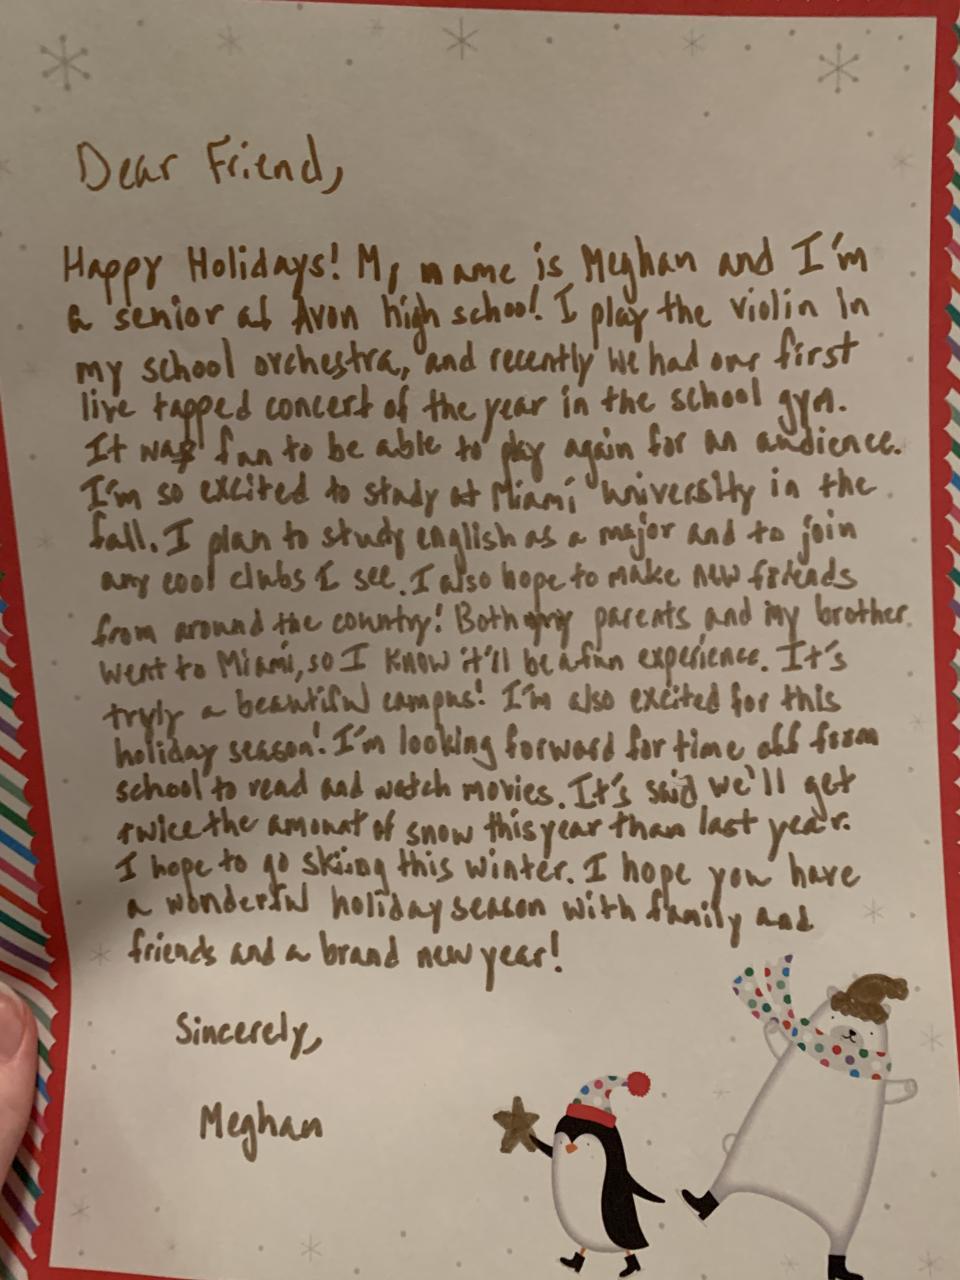 Dear Friend,
Happy Holidays! My name is Meghan and I'm
a senior at Avon high school! I play the violin in
my school orchestra, and recently we had our first
live tapped concert of the year in the school gym.
It was fun to be able to play again for an audience.
I'm so excited to study at Miami university in the
fall. I plan to study english as a major and to join
any cool clubs I see. I also hope to make new friends
from around the country! Both my parents and my brother
went to Miami, so I know it'll be a fun experience. It's
tryly a beautiful campus! I'm also excited for this
holiday season! I'm looking forward for time off from
school to read and watch movies. It's said we'll get
twice the amonat of snow this year than last year.
I hope to go skiing this winter. I hope you have
a wonderful holiday season with family and
friends and a brand new year!
Sincerely,
Meghan